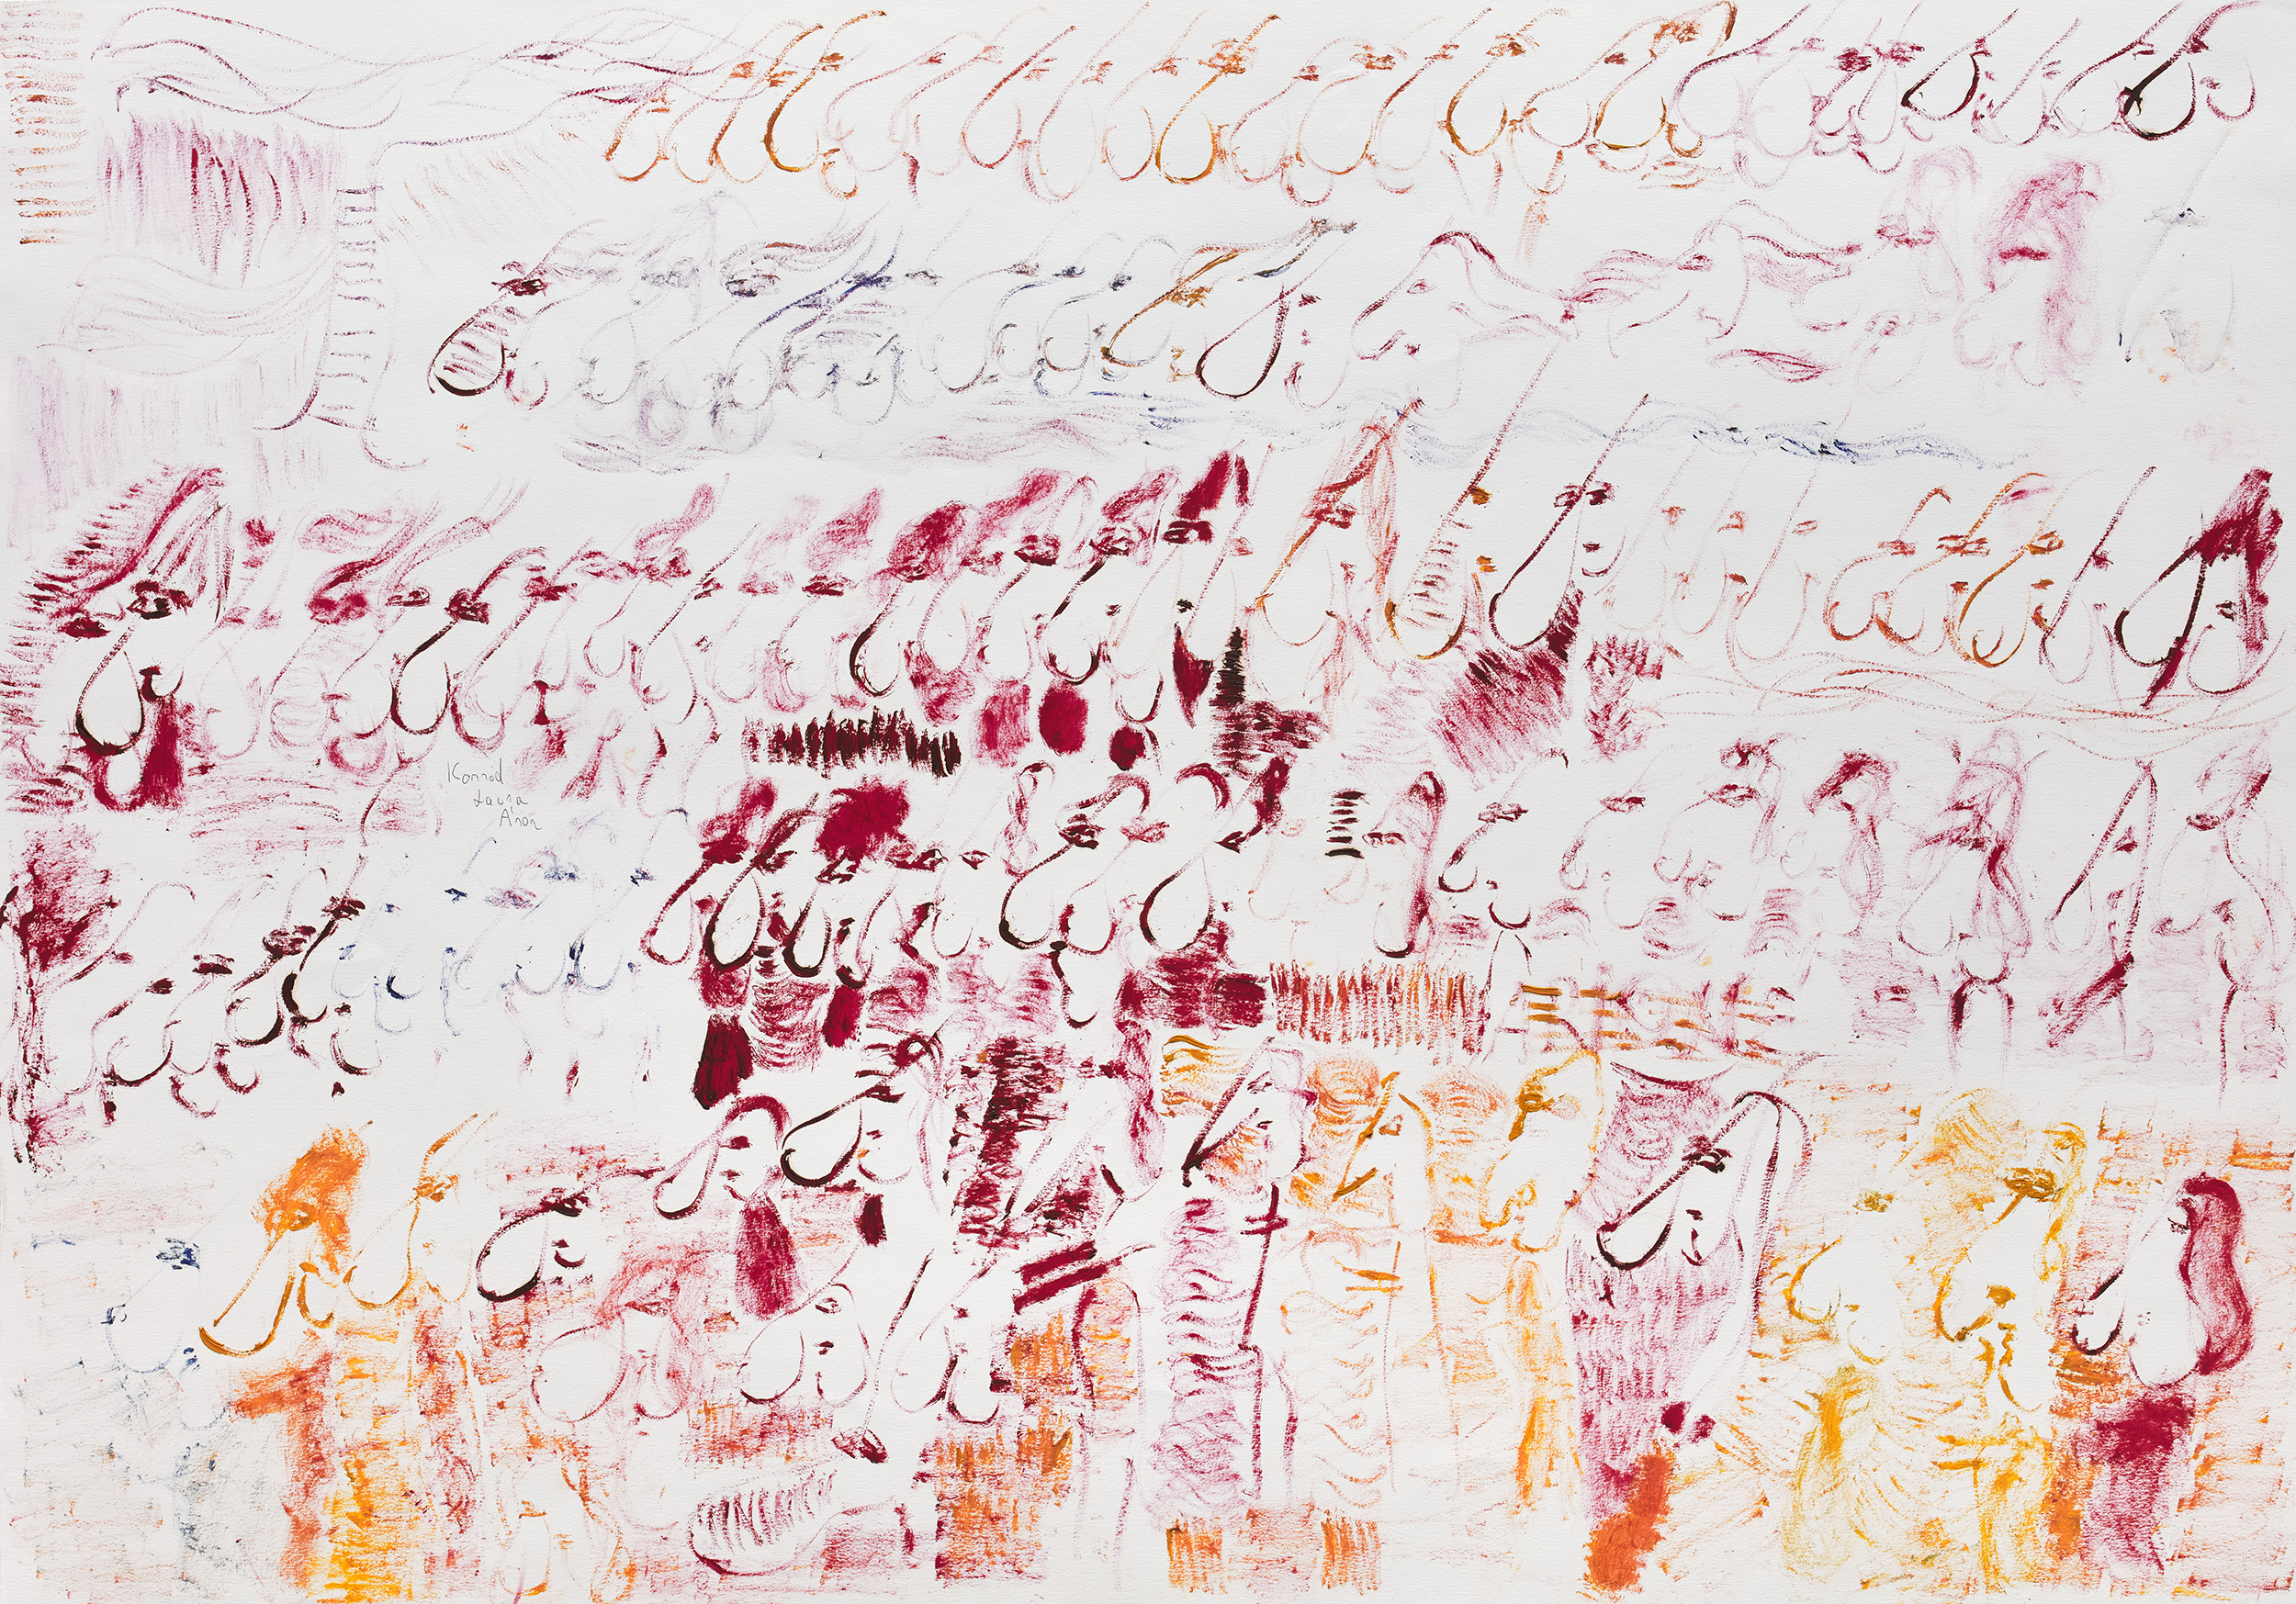 Konrad
Laura
Aron